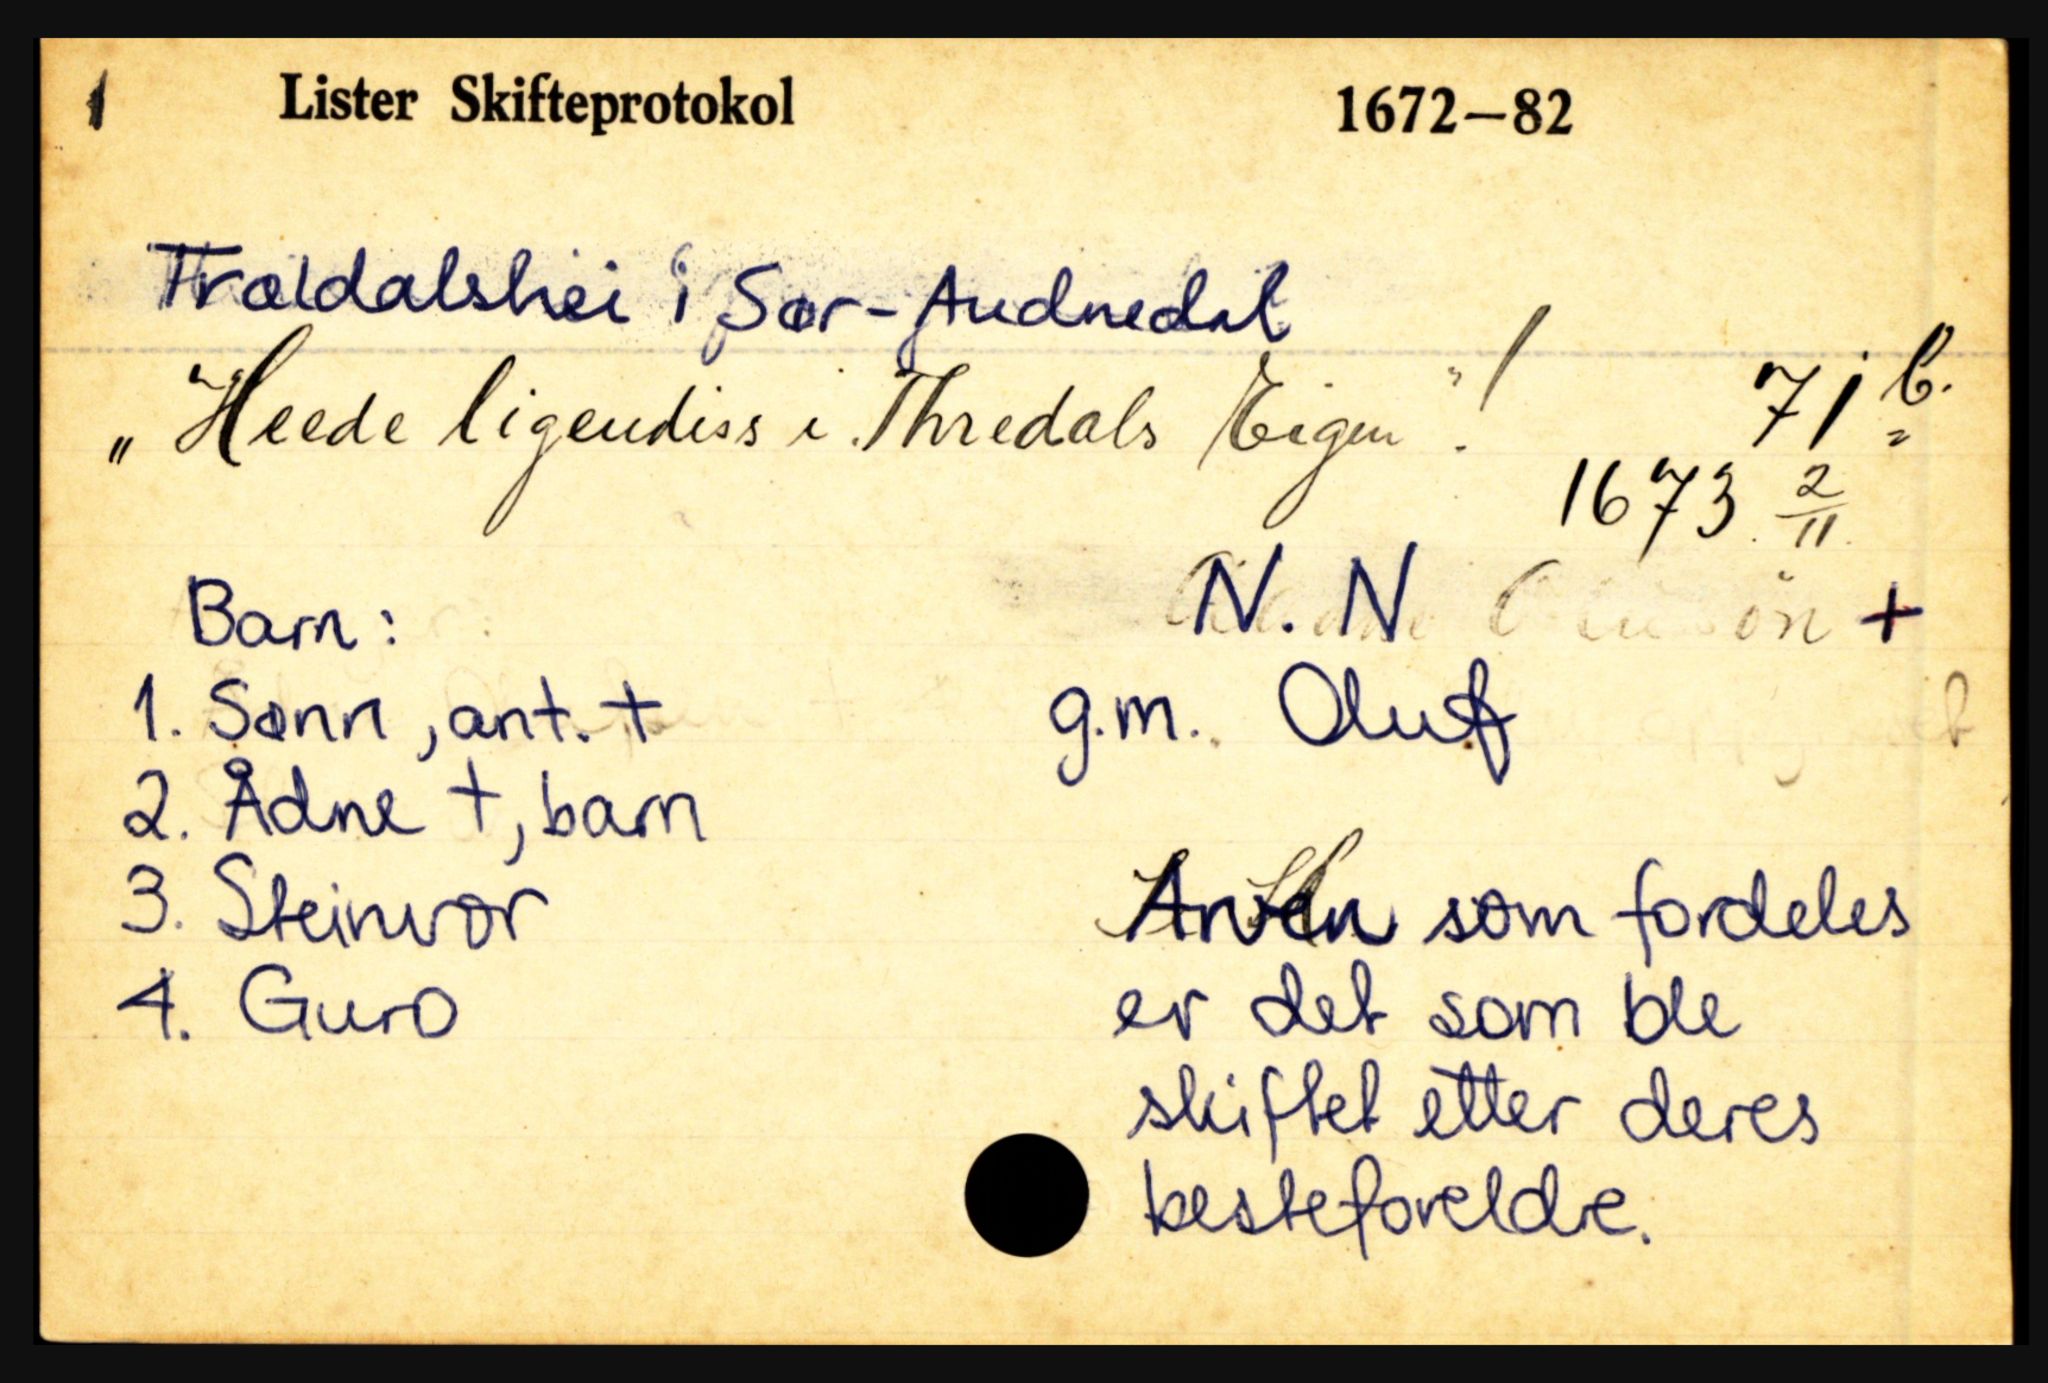 1 Lister Skifteprotokol 1672—82
Trældalshei i Sør-Audnedal
„Heede ligendiss i Thredals Eigen"! 71 b.
1673 2/11
N. N +
Barn:
1. Sønn, ant. + g.m. Oluf
2. Ådne +, barn
3. Steinvor Arven som fordeles
4. Guro er det som ble
skiftet etter deres
besteforeldre.